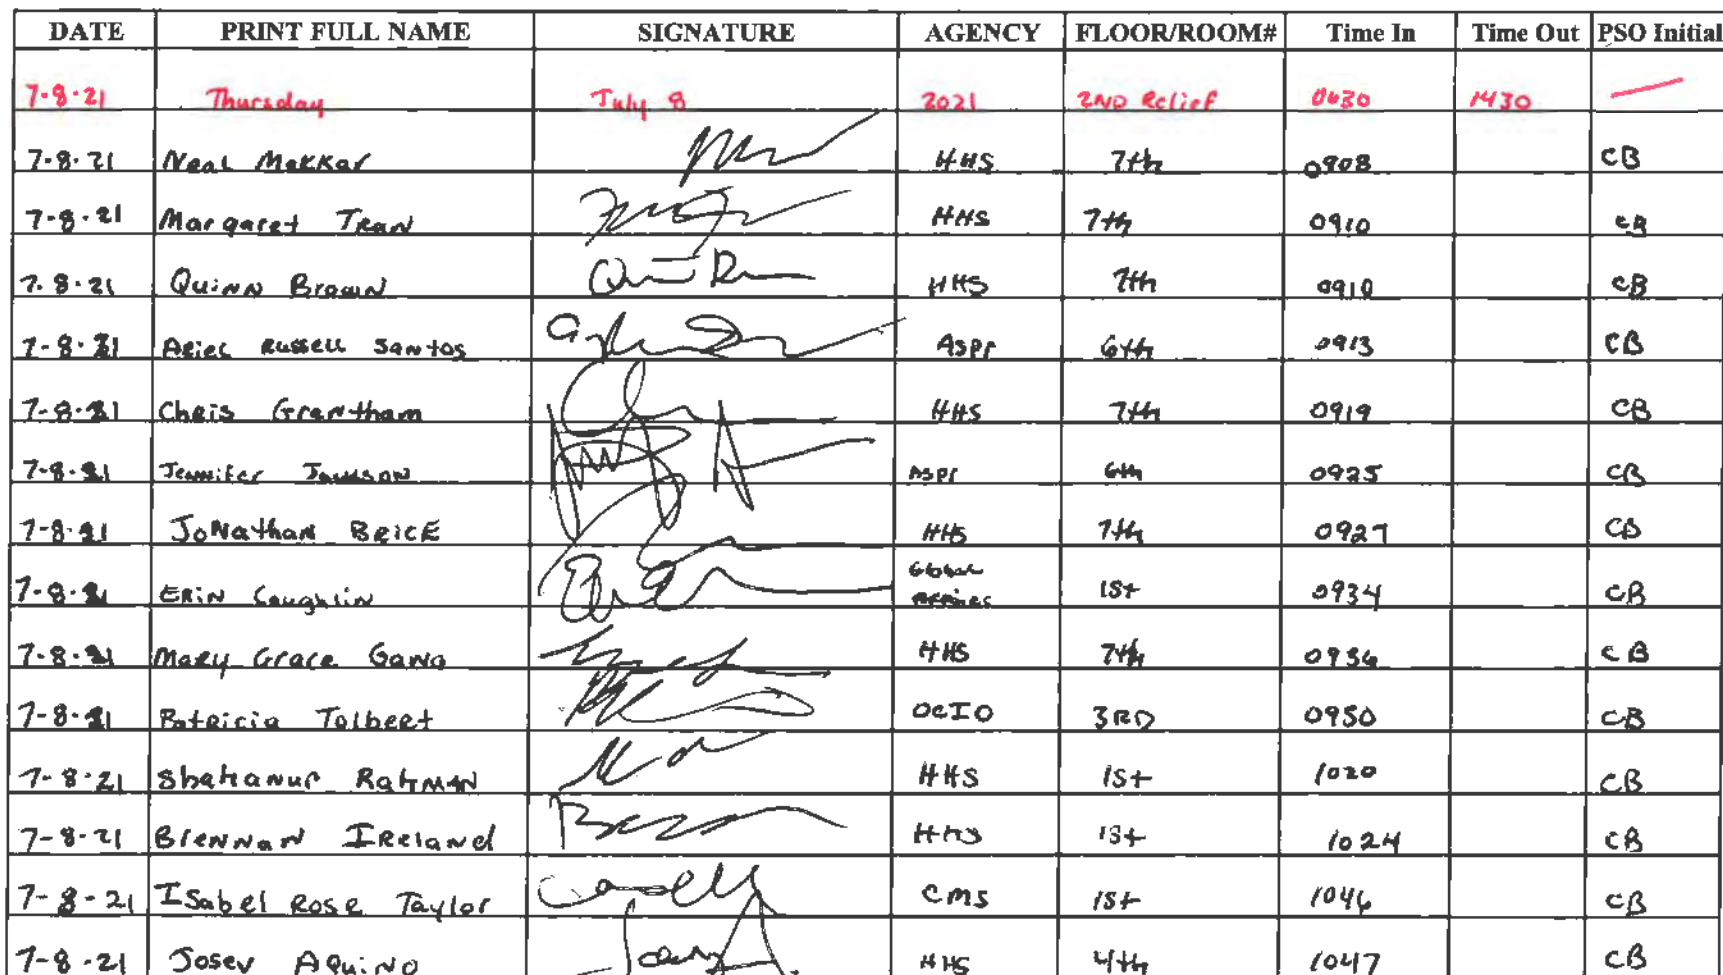 DATE PRINT FULL NAME SIGNATURE AGENCY FLOOR/ROOM# Time In Time Out PSO Initial
7-8-21 Thursday July 8 2021 2ND Relief 0630 1430
7-8-21 Neal Makkar HHS 7th 0908 CB
7-8-21 Margaret Tran HHS 7th 0910 CB
7-8-21 Quinn Brown HHS 7th 0910 CB
7-8-21 Ariel Russell Santos Aspr 6th 0913 CB
7-8-21 Chris Grantham HHS 7th 0919 CB
7-8-21 Jennifer Aspr 6th 0925 CB
7-8-21 JoNathan BRICE HHS 7th 0927 CB
7-8-21 ERiN Coughlin Global Affairs 1St 0934 CB
7-8-21 Mary Grace HHS 7th 0936 CB
7-8-21 Patricia Tolbert OCIO 3RD 0950 CB
7-8-21 Shahanur Rahman HHS 1St 1020 CB
7-8-21 Brennan IReland HHS 1St 1024 CB
7-8-21 ISabel Rose Taylor CMS 1St 1046 CB
7-8-21 Josev AquiNo HHS 4th 1047 CB